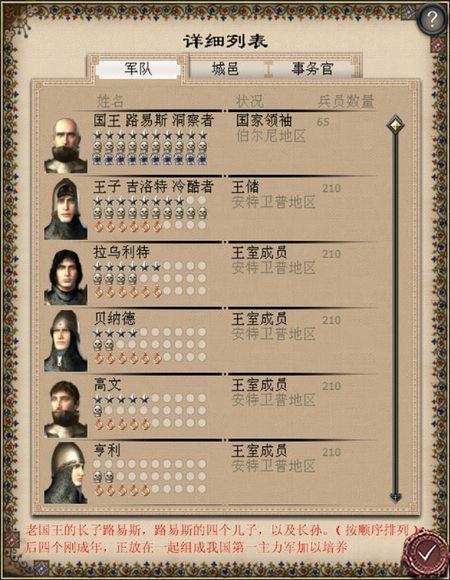 详细列表
军队 城邑 事务官
姓名 状况 兵员数量
国王 路易斯 洞察者 国家领袖 65
伯尔尼地区
王子 吉洛特 冷酷者 王储 210
安特卫普地区
拉乌利特 王室成员 210
安特卫普地区
贝纳德 王室成员 210
安特卫普地区
高文 王室成员 210
安特卫普地区
亨利 王室成员 210
安特卫普地区
老国王的长子路易斯，路易斯的四个儿子，以及长孙。（按顺序排列）
后四个刚成年，正放在一起组成我国第一主力军加以培养
?